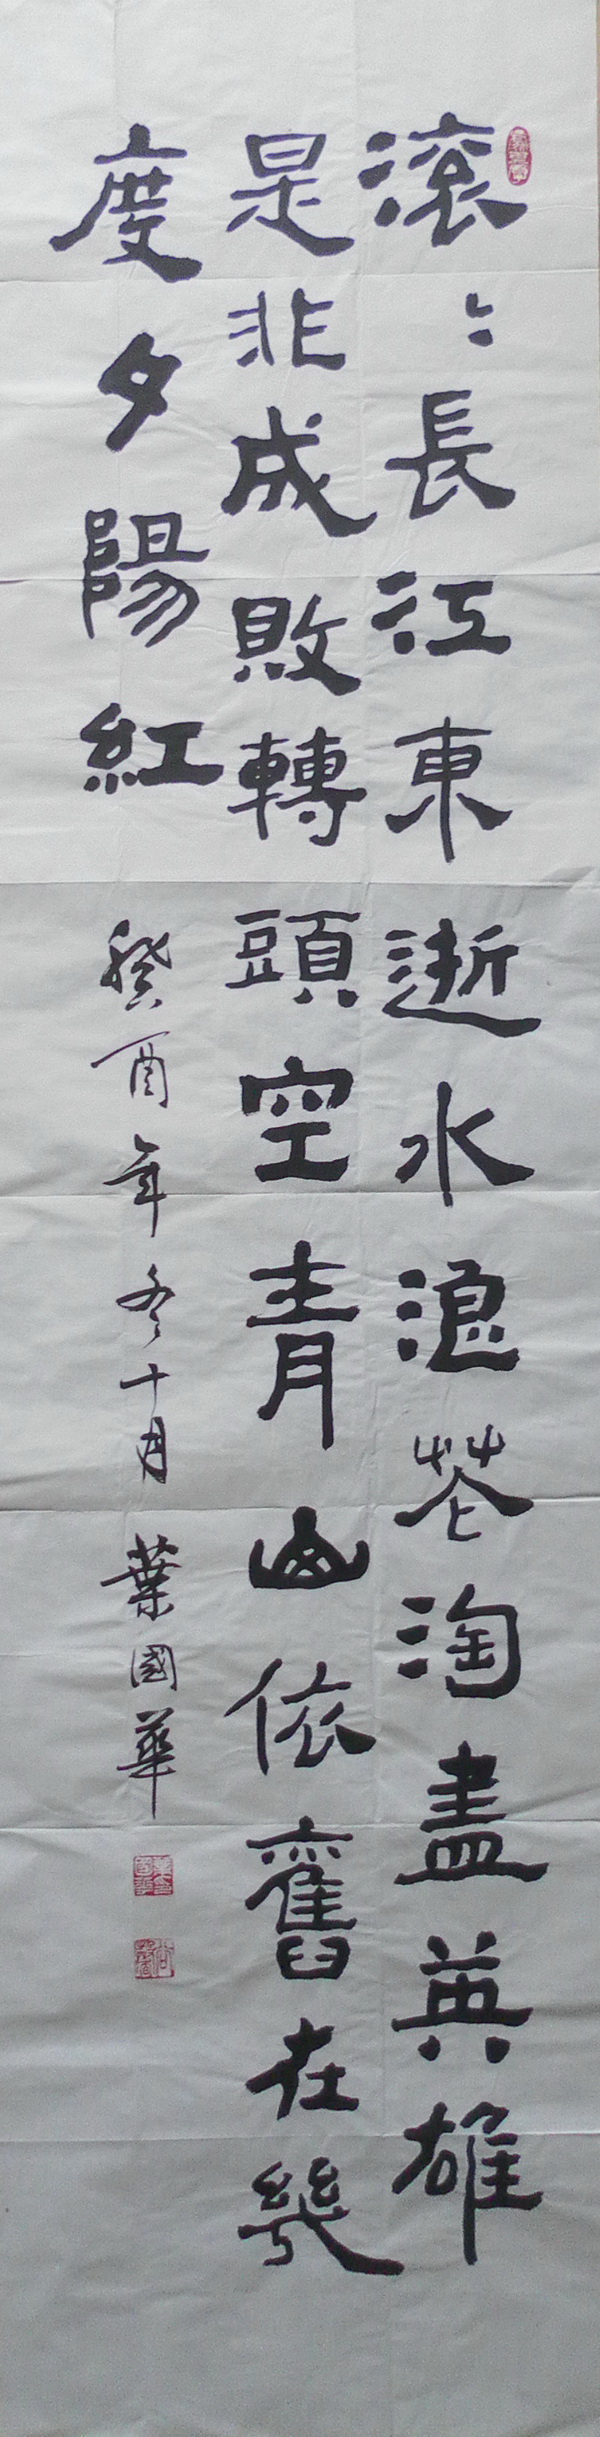 滚⺀長江東逝水浪花淘盡英雄
是非成敗轉頭空青山依舊在幾
度夕陽紅
癸酉年冬十月 葉國華